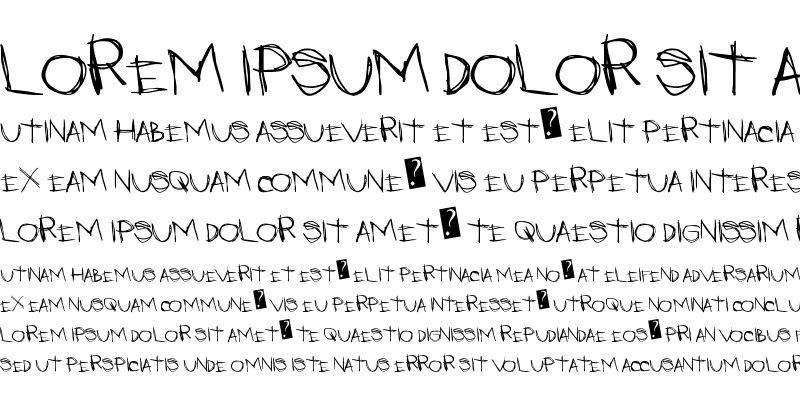 LOREM IPSUM DOLOR SIT A
UTINAM HABEMUS ASSUEVERIT ET EST? ELIT PERTINACIA
EX EAM NUSQUAM COMMUNE? VIS EU PERPETUA INTERES
LOREM IPSUM DOLOR SIT AMET? TE QUAESTIO DIGNISSIM R
UTINAM HABEMUS ASSUEVERIT ET EST? ELIT PERTINACIA MEA NO? AT ELEIFEND ADVERSARIUM
EX EAM NUSQUAM COMMUNE? VIS EU PERPETUA INTERESSET? UTROQUE NOMINATI CONCLU
LOREM IPSUM DOLOR SIT AMET? TE QUAESTIO DIGNISSIM REPUDIANDAE EOS? PRI AN VOCIBUS F
SED UT PERSPICIATIS UNDE OMNIS ISTE NATUS ERROR SIT VOLUPTATEM ACCUSANTIUM DOLOR